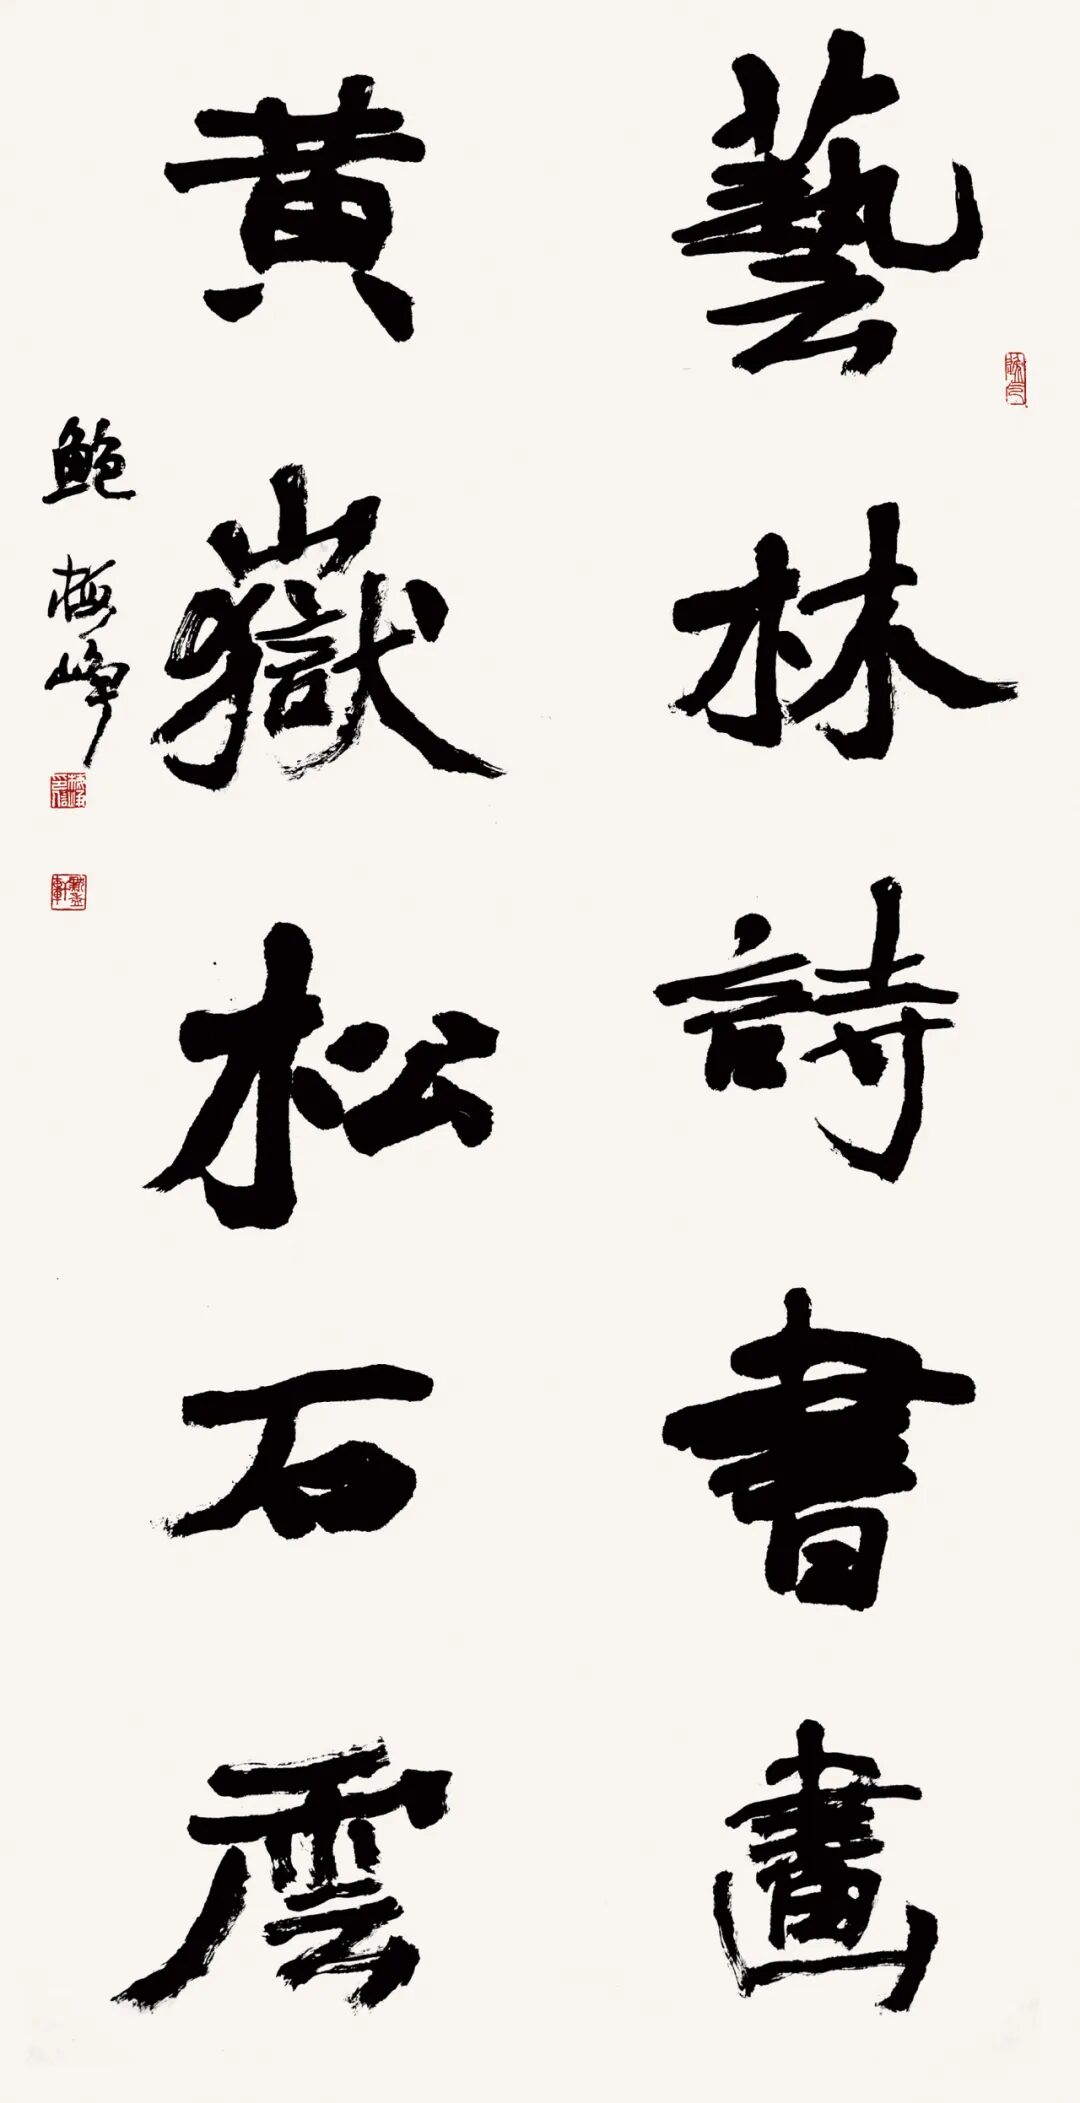 藝林詩書畫
黃嶽松石雲
鮑梅峰